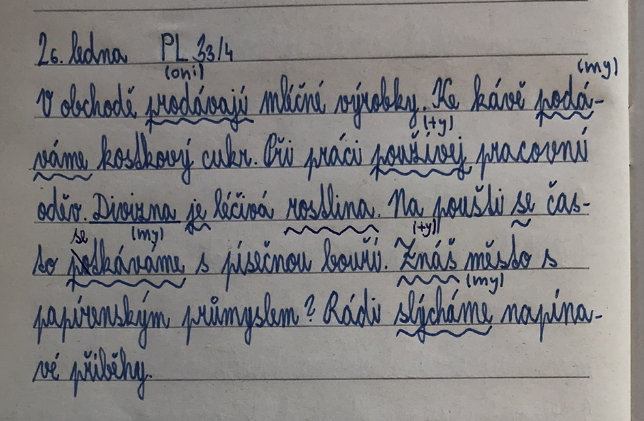 26. ledna PL 33/4
(oni) (my)
V obchodě prodávají mléčné výrobky. Ke kávě podá-
(ty)
váme kostkový cukr. Při práci používej pracovní
oděv. Divizna je léčivá rostlina. Na poušti se čas-
se (my) (ty)
to potkáváme s písečnou bouří. Znáš město s
(my)
papírenským průmyslem? Rádi slýcháme napína-
vé příběhy.